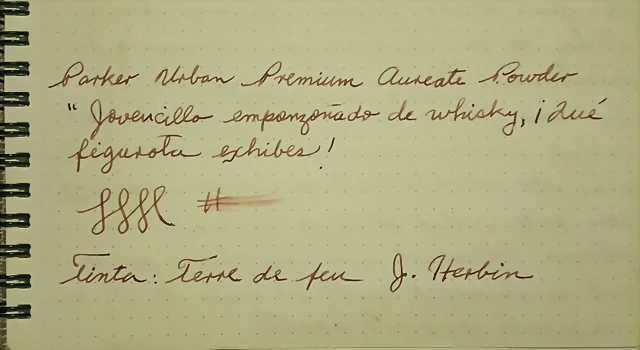 Parker Urban Premium Aureate Powder
" Jovencillo emponzoñado de whisky, ¡Qué
figurota exhibes!
Tinta: Terre de feu J. Herbin